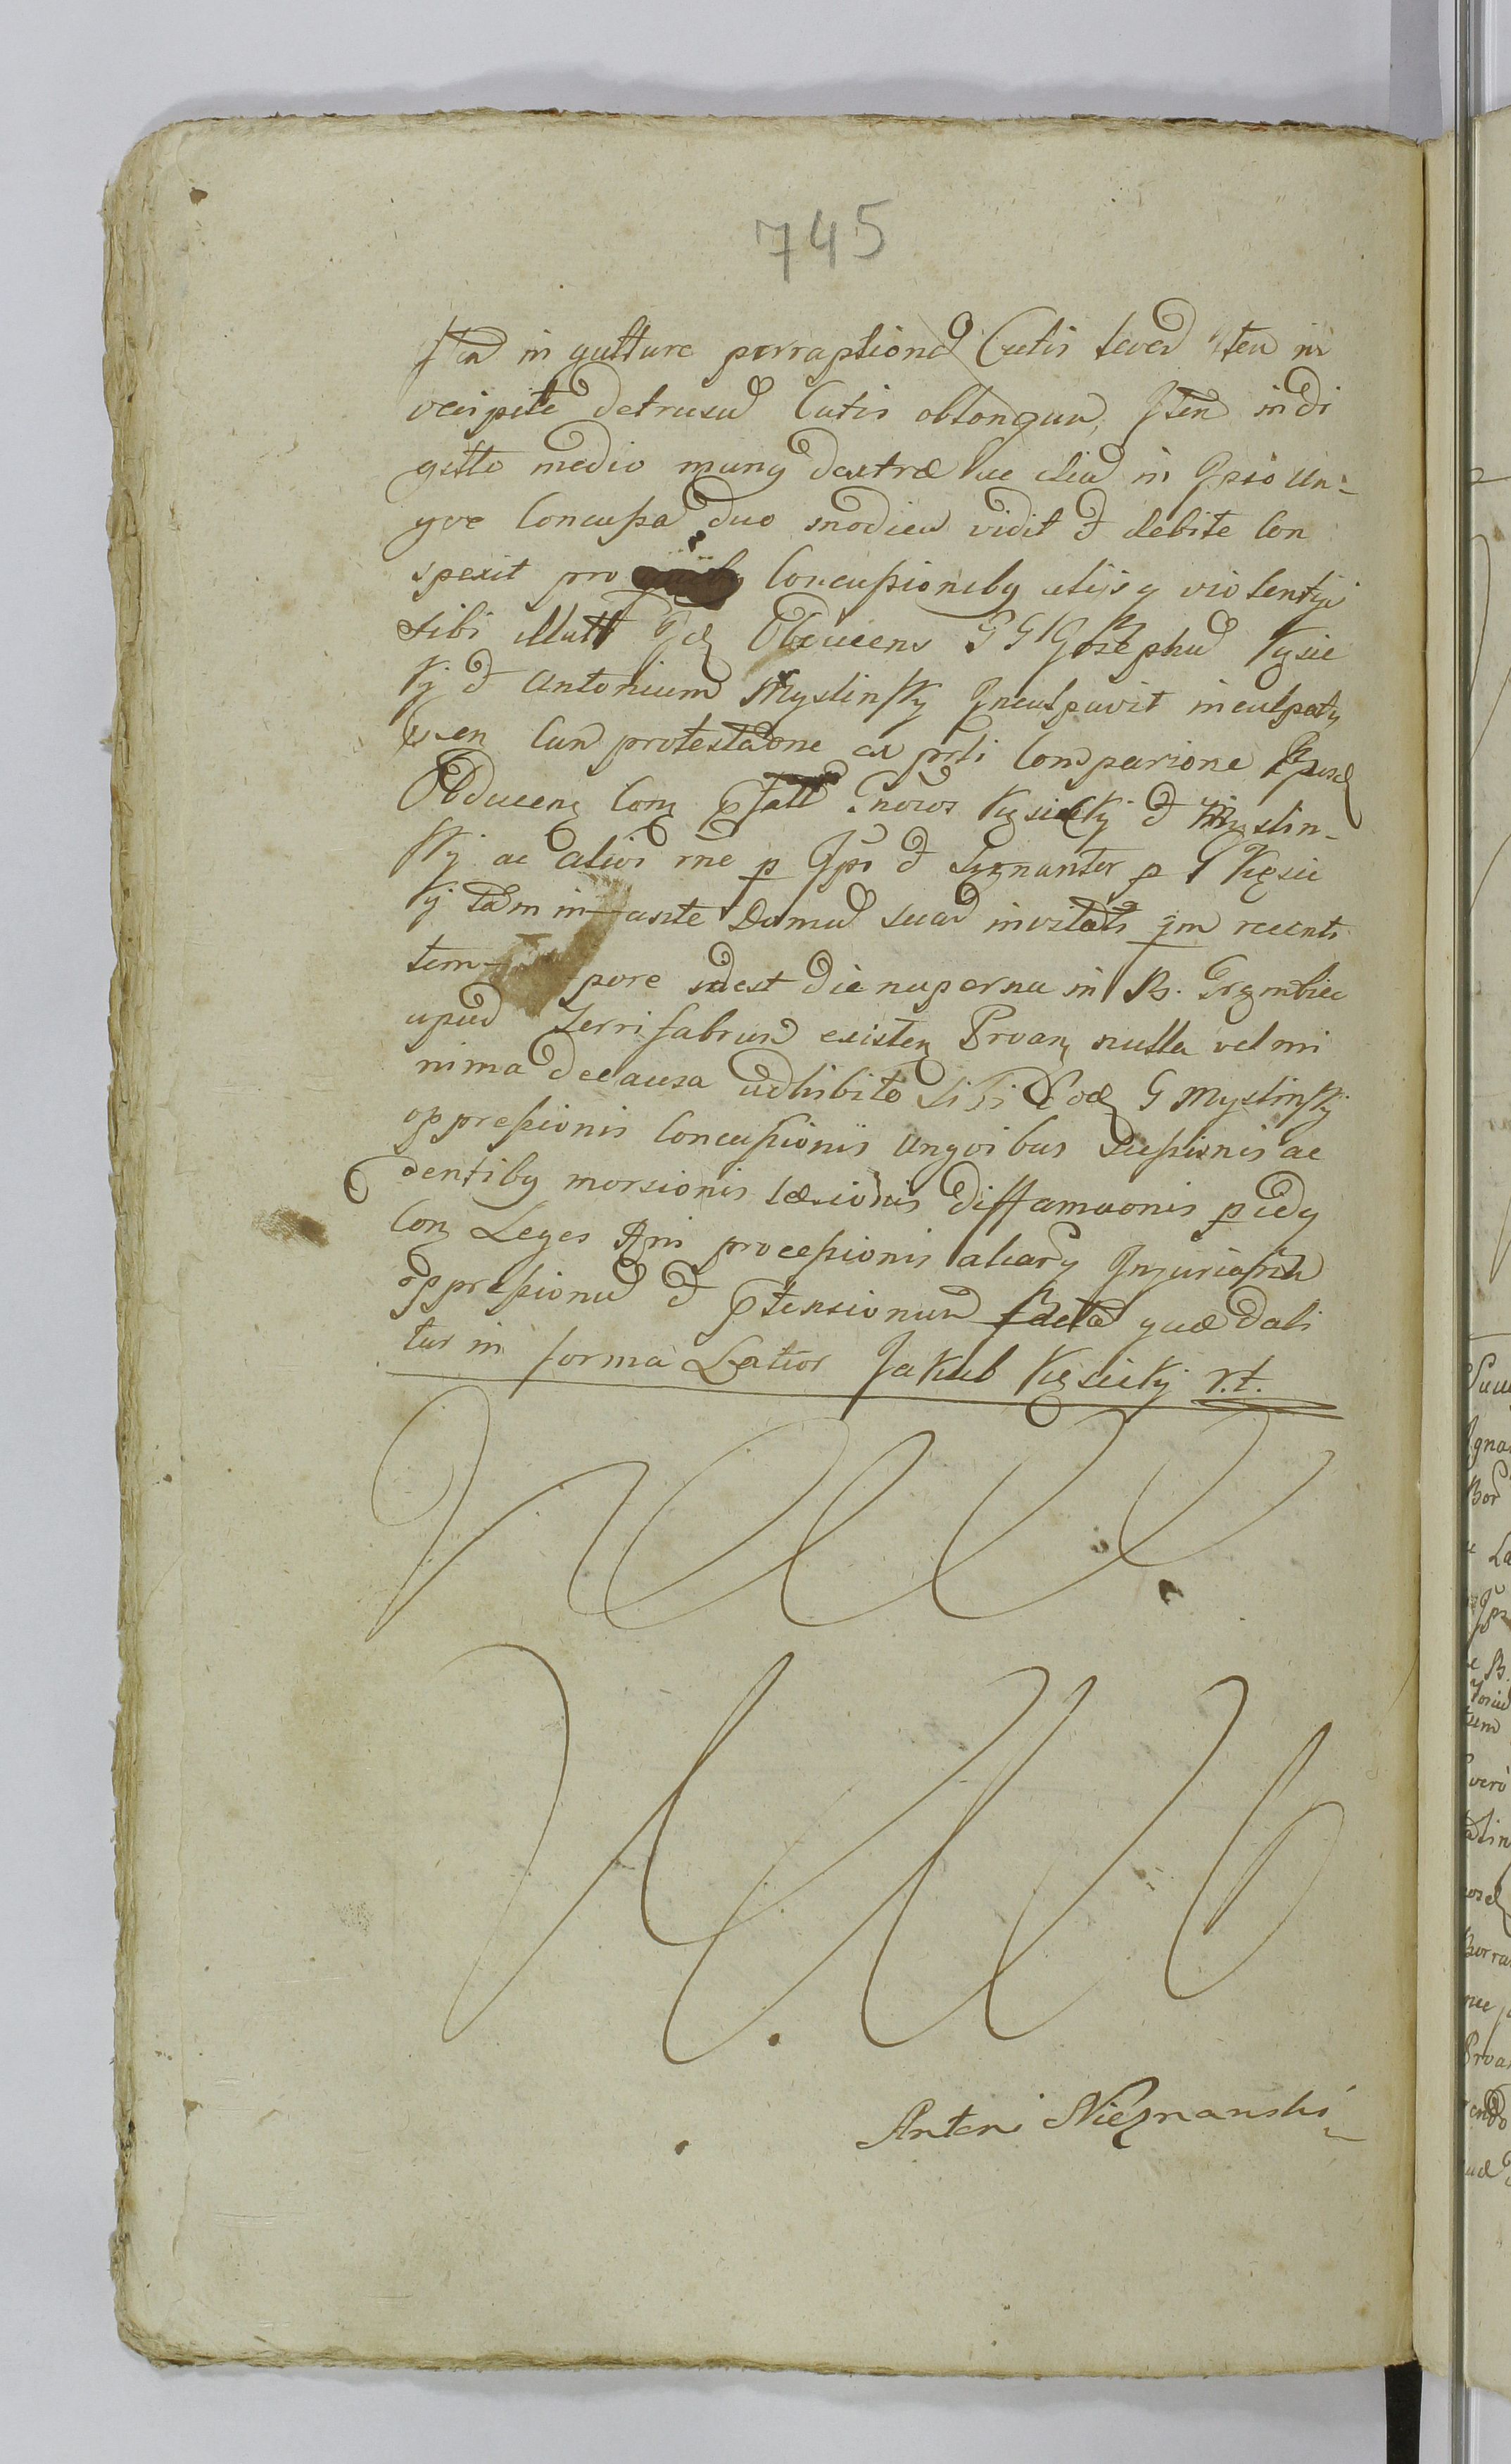 745
Item in gutture perraptionem Cutis levem Item in
occipite detrusum Cutis oblongum, Item in di
gitto medio manus dextræ hac aliam in Ipso un-
gve Concussa duo modica vidit et debite Con
spexit pro Concussionibus alijsq violentijs
sibi illatt Obducens GG Josephum Kęsic
kj et Antonium Myslinskj Inculpavit inculpatq
Cum protestaone ex prti Comparione
Obducen Con Gnosos Kęsickj et Myslin-
skj ac alios rne p Ipsos et Signanter p G Kęsic
kj tam in ante Domum suam invitati jm recenti
tem- pore idest die nuperna in B. Grzmbiec
apud Ferri fabrum existen Prvan nulla vel mi
nima de causa adhibito sibi G Myslinskj
oppressionis Concussionis Ungvibus ac
dentibq morsionis læsionis diffamaonis
Con Leges Rni processionis aliarq Injuriarum
oppressionum et Ptensionum facta quæ dabi
tur in forma Latior Jakub Kęsickj r.t.
Antoni Nieznanski